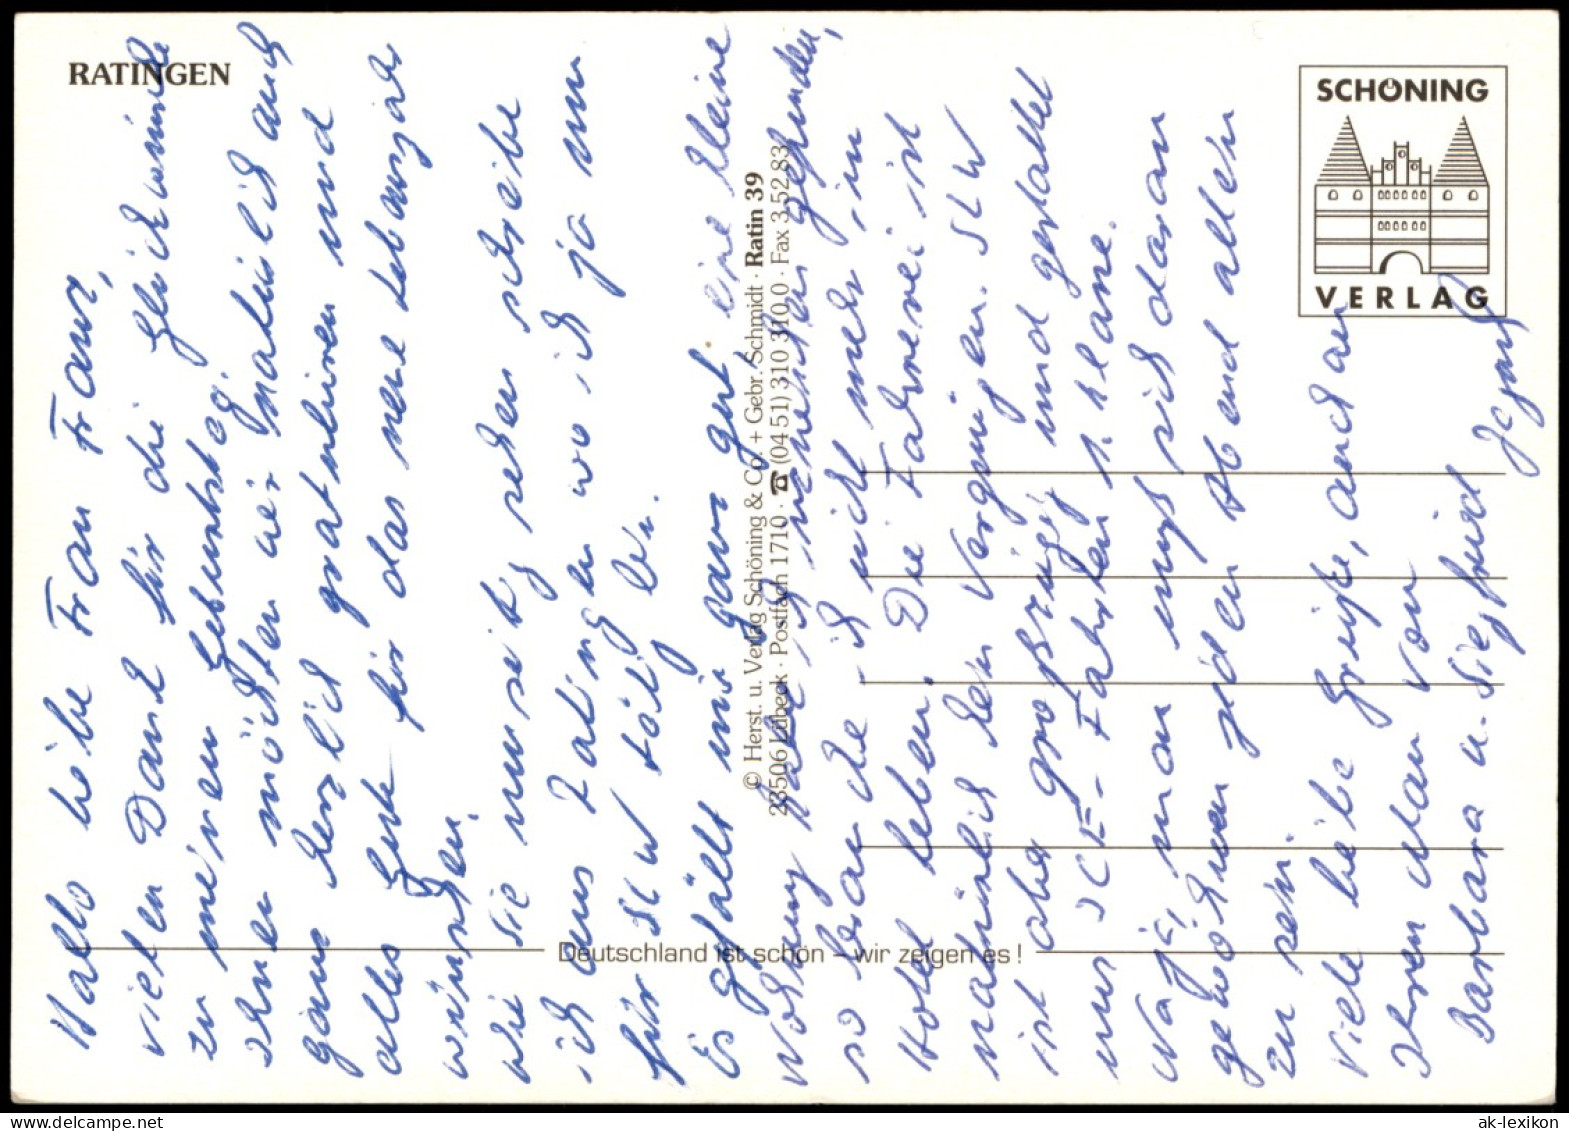 RATINGEN
SCHÖNING
VERLAG
Hallo liebe Frau Franz,
vielen Dank für die Glückwünsche
zu meinem Geburtstag.
Ihnen möchten wir natürlich auch
ganz herzlich gratulieren und
alles Gute für das neue Lebensjahr
wünschen.
Wie Sie unseitig sehen schreibe
ich aus Ratingen wo ich ja nun
für SLW tätig bin.
Es gefällt mir ganz gut, eine kleine
Wohnung habe ich inzwischen gefunden,
so brauche ich nicht mehr im
Hotel leben. Die Fahrerei ist
natürlich kein Vergnügen. SLW
ist aber großzügig und gestattet
uns ICE-Fahrten 1. Klasse.
Naja, man muß sich daran
gewöhnen jeden Abend allein
zu sein.
Viele liebe Grüße, auch an
Ihren Mann von
Barbara u. Siegfried
© Herst. u. Verlag Schöning & Co. + Gebr. Schmidt · Ratin 39
23506 Lübeck · Postfach 1710 · ☎ (04 51) 310 310,0 · Fax 3.52.83
Deutschland ist schön – wir zeigen es !
ak-lexikon